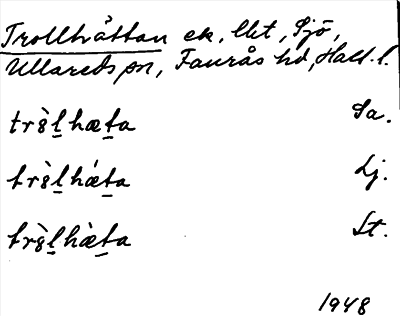 Trollhättan ek, lht, Sjö,
Ullareds sn, Faurås hd, Hall. l.
tròl̲hæt̲a Sa.
tròl̲hǽt̲a Lj.
tròl̲hæ̀t̲a St.
1948